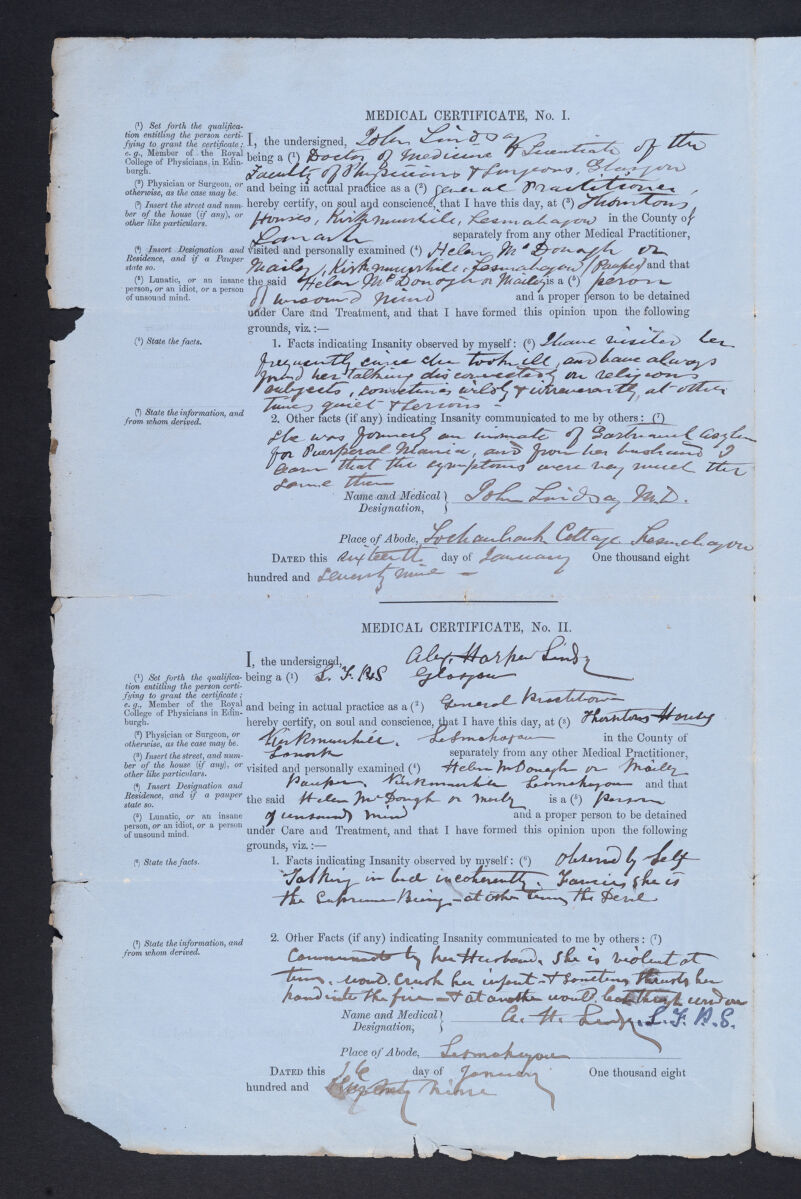 MEDICAL CERTIFICATE, No. I.
(1) Set forth the qualifica-
tion entitling the person certi-
fying to grant the certificate;
e.g., Member of the Royal
College of Physicians in Edin-
burgh.
(2) Physician or Surgeon, or
otherwise, as the case may be.
(3) Insert the street and num-
ber of the house (if any), or
other like particulars.
(4) Insert Designation and
Residence, and if a Pauper
state so.
(5) Lunatic, or an insane
person, or an idiot, or a person
of unsound mind.
(6) State the facts.
(7) State the information, and
from whom derived.
I, the undersigned, John Lindsay
being a (1) Doctor of Medicine & Licentiate of the
Faculty of Physicians & Surgeons, Glasgow
and being in actual practice as a (2) General Practitioner,
hereby certify, on soul and conscience, that I have this day, at (3) Thorntons
Houses, Kirkmuirhill, Lesmahagow in the County of
Lanark separately from any other Medical Practitioner,
visited and personally examined (4) Helen McDonagh or
Mailey, Kirkmuirhill, Lesmahagow (Pauper) and that
the said Helen McDonagh or Mailey is a (5) person
of unsound mind and a proper person to be detained
under Care and Treatment, and that I have formed this opinion upon the following
grounds, viz.:—
1. Facts indicating Insanity observed by myself: (6) I have visited her
frequently since she took ill, and have always
found her talking disconnectedly on religious
subjects, sometimes wildly & irreverently, at other
times quiet & serious
2. Other facts (if any) indicating Insanity communicated to me by others: (7)
She was formerly an inmate of Gartnavel Asylum
for Puerperal Mania, and from her husband I
learn that the symptoms were very much the
same then
Name and Medical Designation, } John Lindsay M.D.
Place of Abode, Lochanbank Cottage Lesmahagow
DATED this sixteenth day of January One thousand eight
hundred and seventy nine —
MEDICAL CERTIFICATE, No. II.
(1) Set forth the qualifica-
tion entitling the person certi-
fying to grant the certificate;
e. g., Member of the Royal
College of Physicians in Edin-
burgh.
(2) Physician or Surgeon, or
otherwise, as the case may be.
(3) Insert the street and num-
ber of the house (if any), or
other like particulars.
(4) Insert Designation and
Residence, and if a pauper
state so.
(5) Lunatic, or an insane
person, or an idiot, or a person
of unsound mind.
(6) State the facts.
(7) State the information, and
from whom derived.
I, the undersigned, Alex. Harper Lindsay
being a (1) L. F. P&S Glasgow
and being in actual practice as a (2) General Practitioner
hereby certify, on soul and conscience, that I have this day, at (3) Thorntons Houses
Kirkmuirhill, Lesmahagow in the County of
Lanark separately from any other Medical Practitioner,
visited and personally examined (4) Helen McDonagh or Mailey
Pauper, Kirkmuirhill Lesmahagow and that
the said Helen McDough or Maily is a (5) person
of unsound mind and a proper person to be detained
under Care and Treatment, and that I have formed this opinion upon the following
grounds, viz.:—
1. Facts indicating Insanity observed by myself: (6) Observed by Self
Talking in bed incoherently. Fancies she is
the Supreme Being – at other times the Devil
2. Other Facts (if any) indicating Insanity communicated to me by others: (7)
by her Husband. She is violent at
times. would crush her infant & sometimes thrusts her
hand into the fire – & at another would
Name and Medical Designation, } A. H. Lindsay L. F. P. S.
Place of Abode, Lesmahagow
DATED this 16 day of January One thousand eight
hundred and Seventy Nine